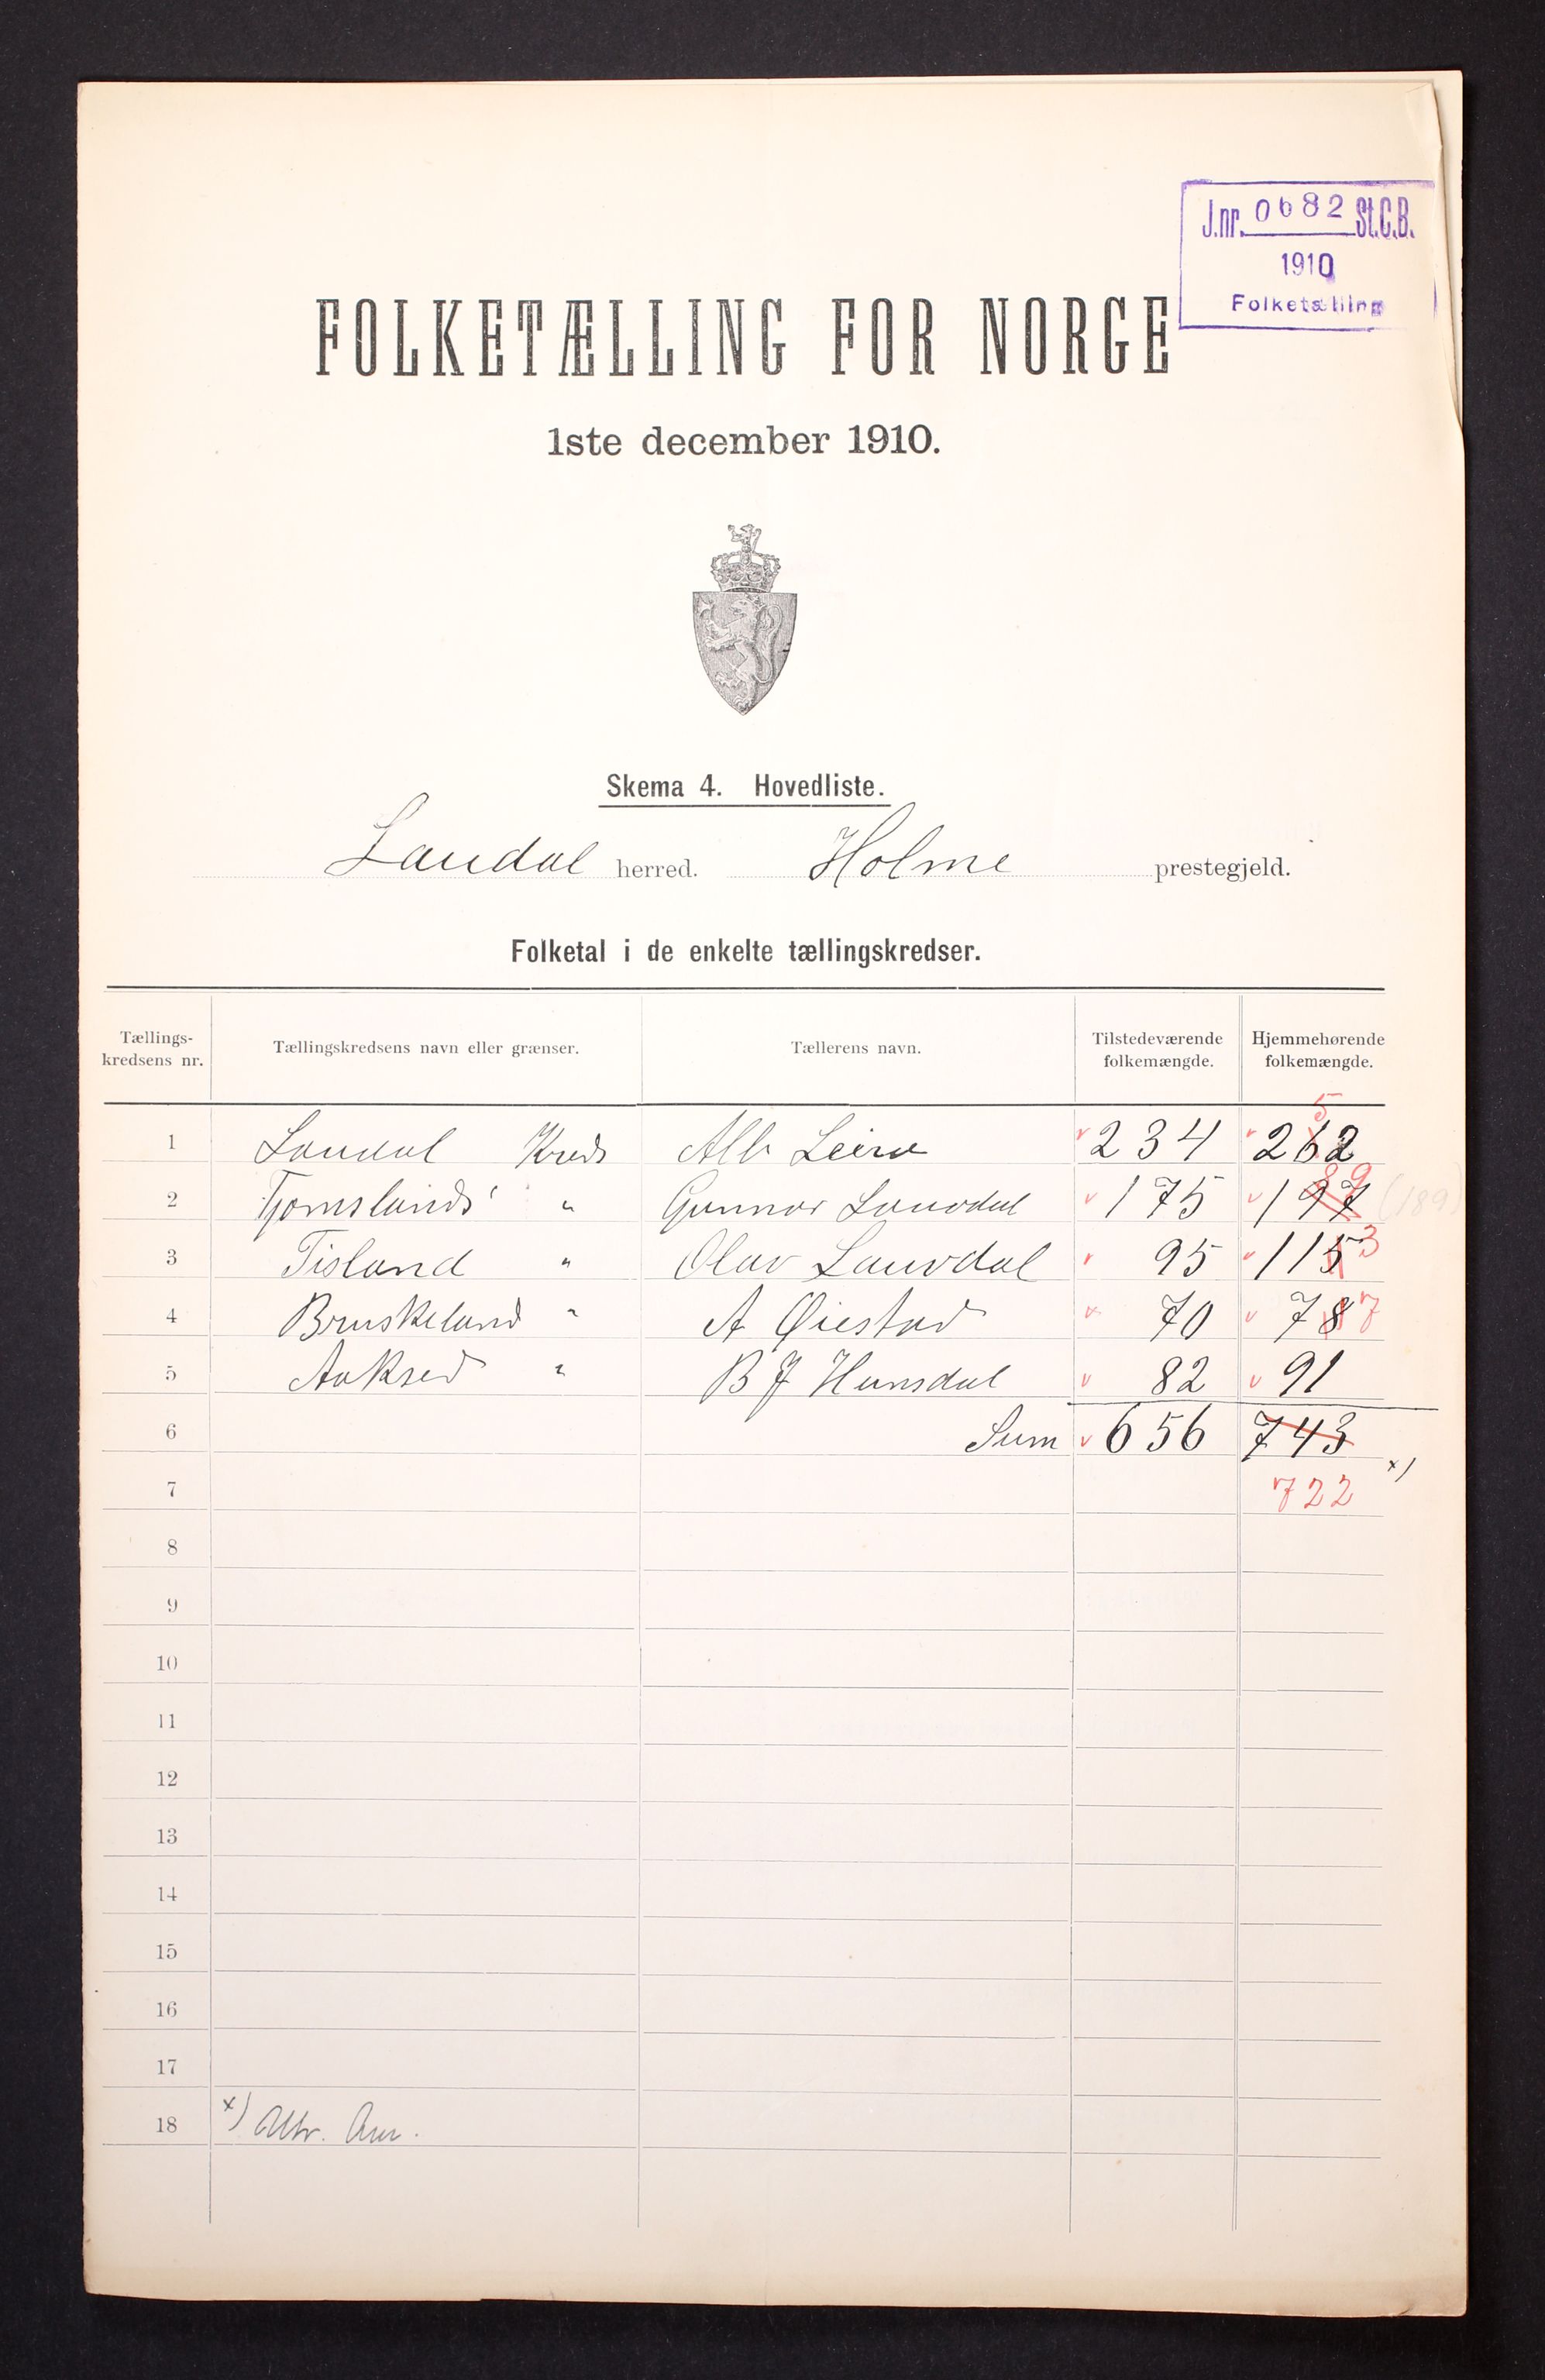 J.nr. 0682 St.C.B.
1910
Folketælling
FOLKETÆLLING FOR NORGE
1ste december 1910.
Skema 4. Hovedliste.
Laudal herred. Holme prestegjeld.
Folketal i de enkelte tællingskredser.
Tællings-kredsens nr. Tællingskredsens navn eller grænser. Tællerens navn. Tilstedeværende folkemængde. Hjemmehørende folkemængde.
5
1 Laudal Kreds Alb Leire 234 262
89
2 Tjomslands " Gunnar Lauvdal 175 197 (189)
3 Tisland " Olav Lauvdal 95 115 3
4 Bruskeland " A Øiestad 70 78 7
5 Aaksed " B J Hunsdal 82 91
6 Sum 656 743
x)
7 722
8
9
10
11
12
13
14
15
16
17
18 x)